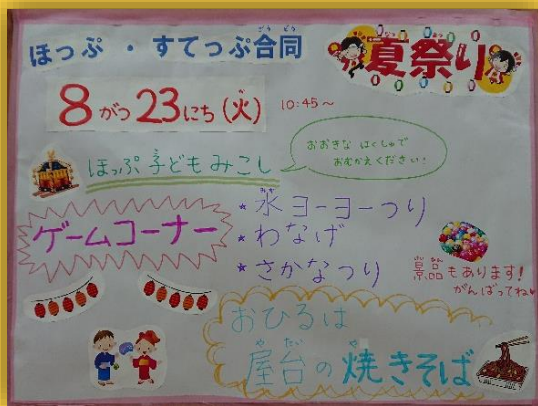 ほっぷ・すてっぷ合同
ごうどう
夏祭り
なつまつ
8がつ23にち(火) 10:45～
か
ほっぷ子どもみこし
こ
おおきな はくしゅで
おむかえください！
ゲームコーナー
★水ヨーヨーつり
みず
★わなげ
★さかなつり
景品もあります！
がんばってね
おひるは
屋台の焼きそば
やたい
や